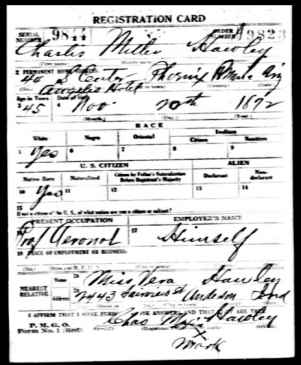 REGISTRATION CARD
SERIAL NUMBER 98 ORDER NUMBER A9823
Charles Miller Hawley
2 PERMANENT HOME ADDRESS
40 S Center Phoenix Ariz
Angeles Hotel
Age in Years Date of Birth
45 Nov 20th 1872
RACE
White Negro Oriental Indian
Citizen Noncitizen
5 Yes 6 7 8 9
U. S. CITIZEN ALIEN
Native Born Naturalized Citizen by Father's Naturalization Before Registrant's Majority Declarant Non-declarant
10 Yes 11 12 13 14
15
If not a citizen of the U. S., of what nation are you a citizen or subject?
PRESENT OCCUPATION EMPLOYER'S NAME
Prof Aeronot Himself
PLACE OF EMPLOYMENT OR BUSINESS
NEAREST RELATIVE
Name Miss Vera Hawley
Address 2443 Anderson Ind
I AFFIRM THAT I HAVE
P. M. G. O.
Form No. 1 (Red)
Chas M Hawley
mark